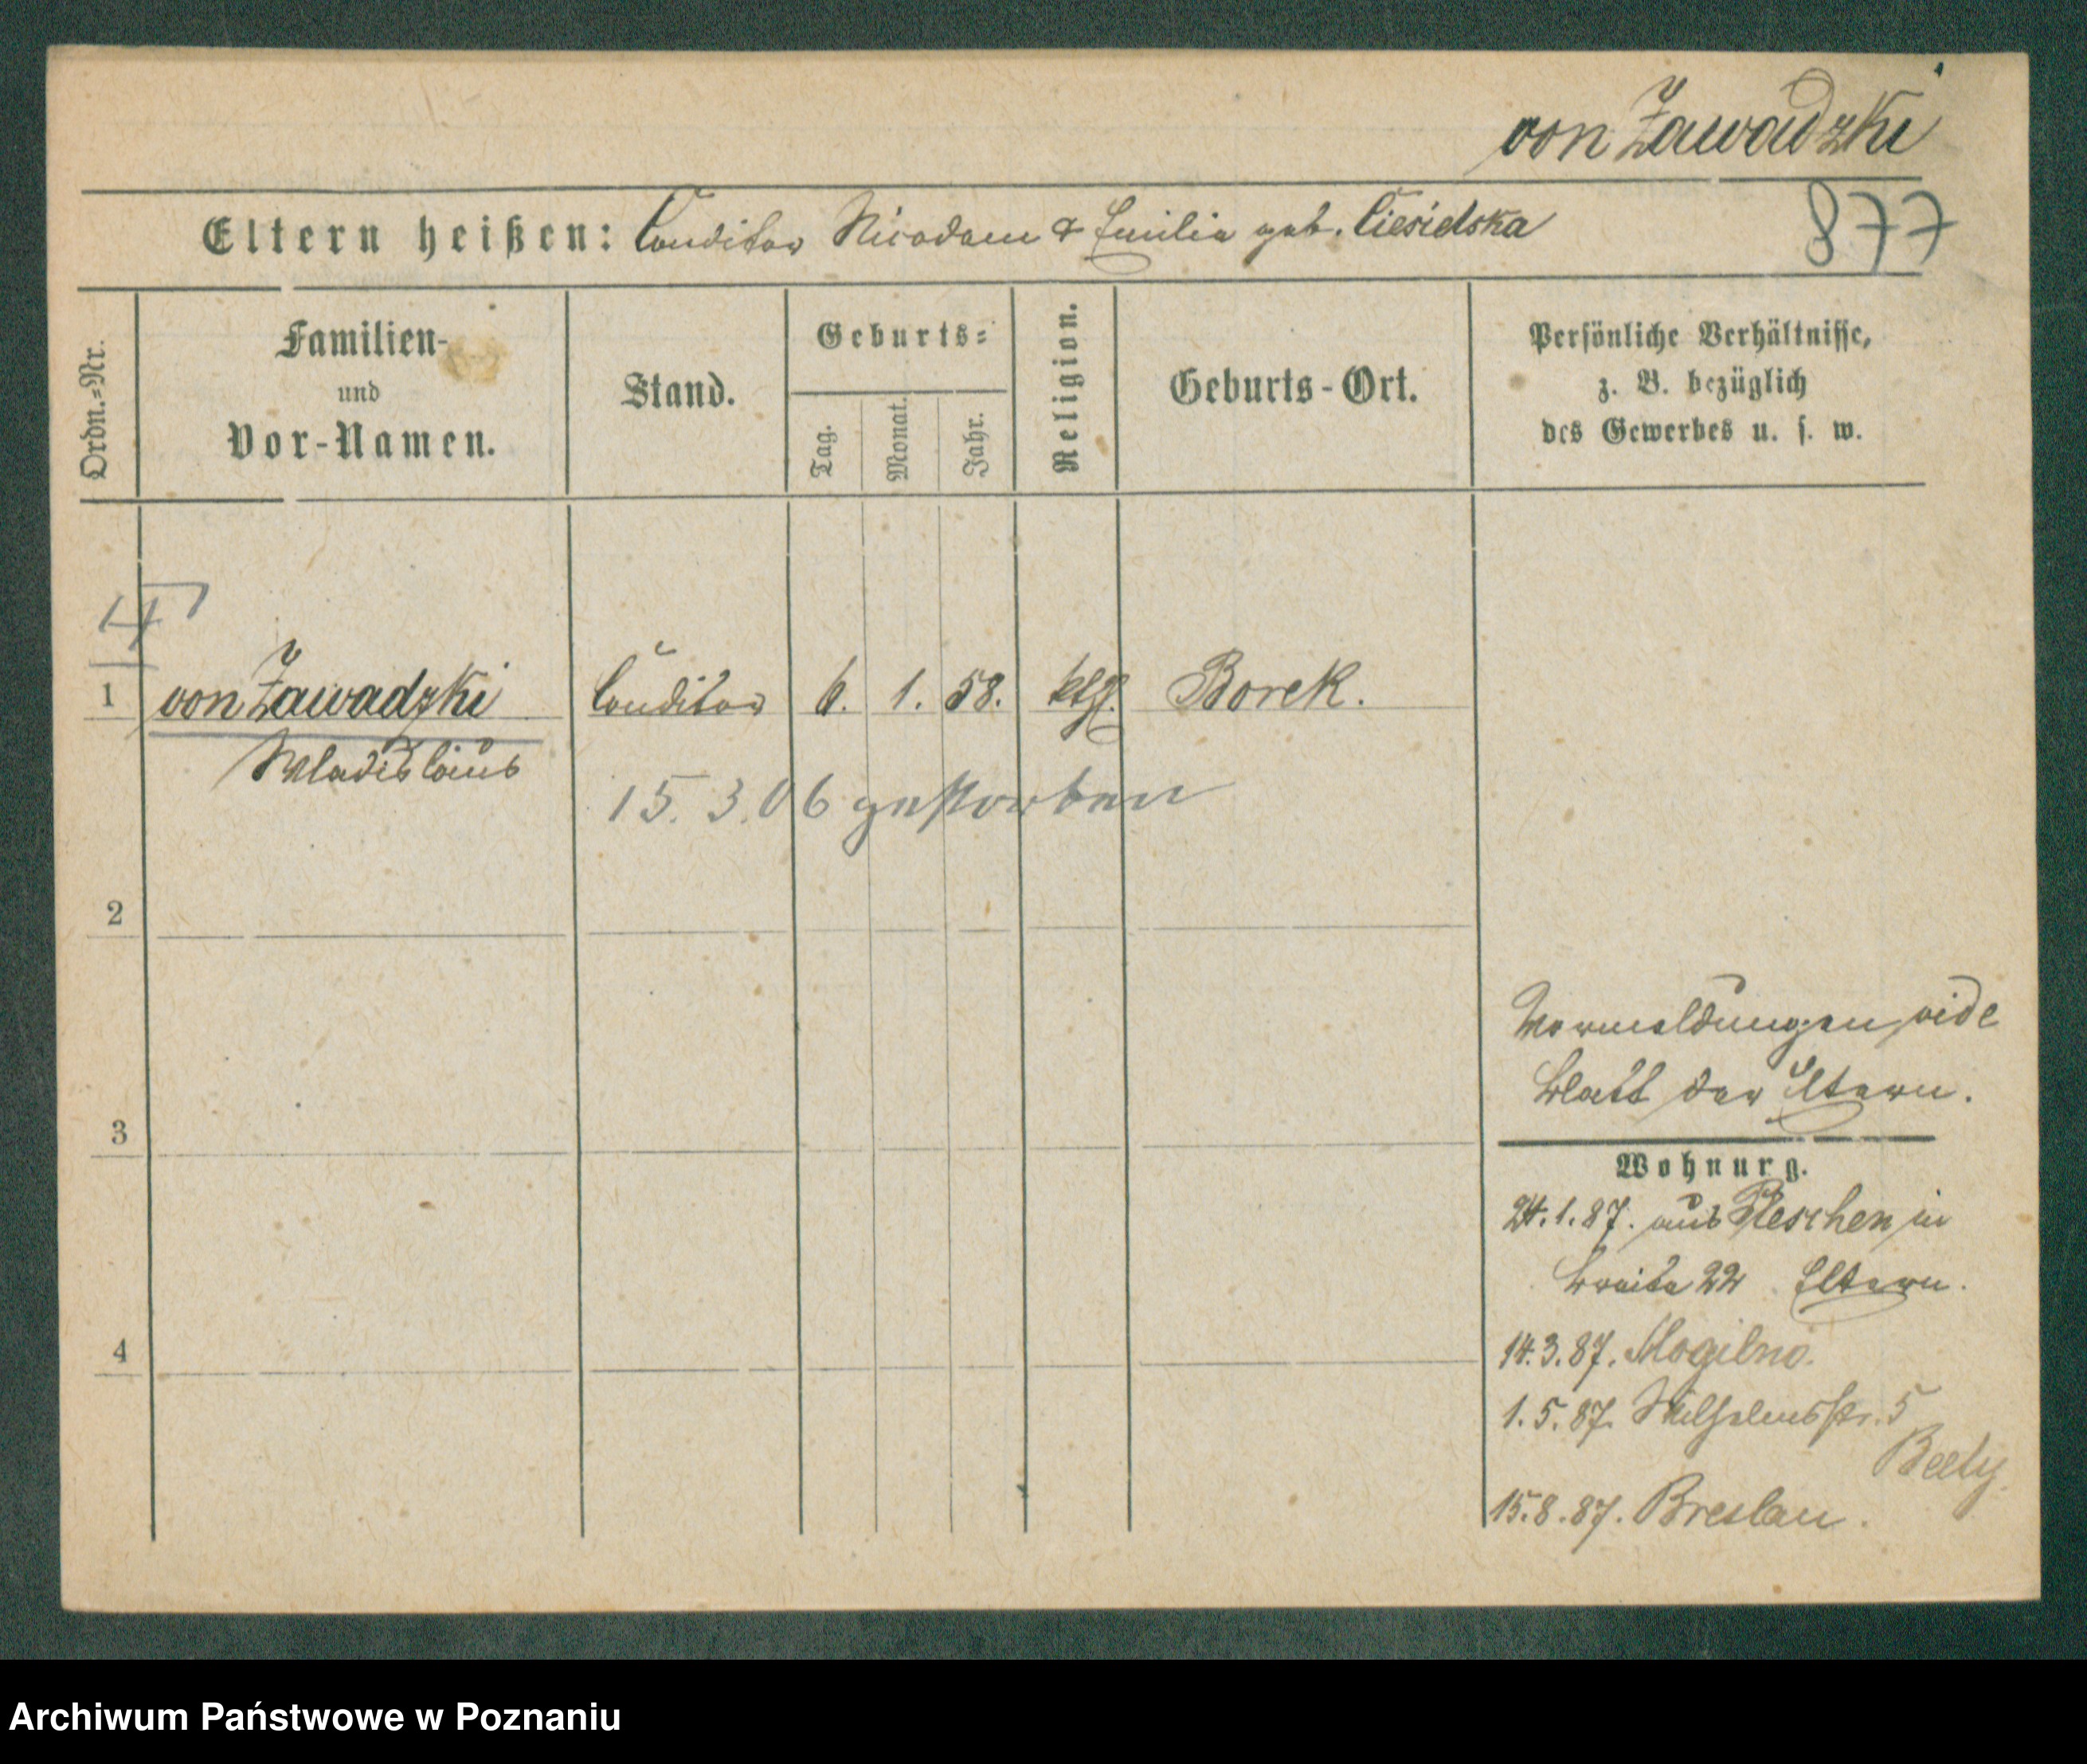 von Zawadzki
877
Eltern heißen: Conditor Nicodem & Emilia geb. Ciesielska
Ordn.=Nr.
Familien-
und
Vor-Namen.
Stand.
Geburts=
Tag.
Monat.
Jahr.
Religion.
Geburts-Ort.
Persönliche Verhältnisse,
z. B. bezüglich
des Gewerbes u. s. w.
1 von Zawadzki Conditor 6. 1. 58. kth. Borek.
Wladislaus
15. 3. 06 gestorben
2
3
4
Vormeldungen vide
Blatt der Eltern.
Wohnung.
24.1.87. aus Pleschen in
Breite 22 Eltern.
14.3.87. Mogilno.
1.5.87. Wilhelmsstr. 5
Beely.
15.8.87. Breslau.
Archiwum Państwowe w Poznaniu